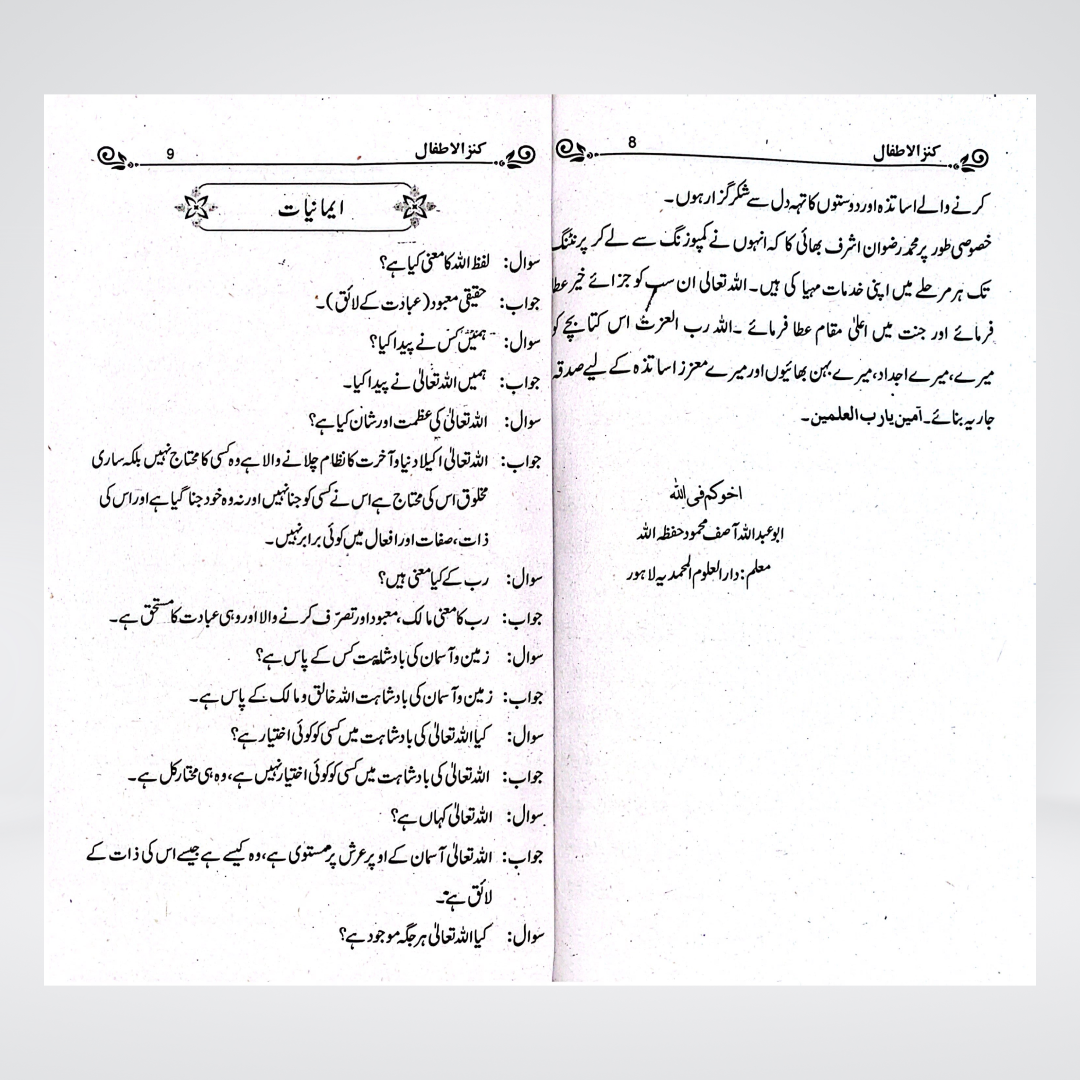 کنز الاطفال 8
کرنے والے اساتذہ اور دوستوں کا تہہ دل سے شکر گزار ہوں۔
خصوصی طور پر محمد رضوان اشرف بھائی کا کہ انہوں نے کمپوزنگ سے لے کر پرنٹنگ
تک ہر مرحلے میں اپنی خدمات مہیا کی ہیں۔ اللہ تعالیٰ ان سب کو جزائے خیر عطا
فرمائے اور جنت میں اعلیٰ مقام عطا فرمائے ۔ اللہ رب العزت اس کتابچے کو
میرے، میرے اجداد، میرے بہن بھائیوں اور میرے معزز اساتذہ کے لیے صدقہ
جاریہ بنائے۔ آمین یارب العلمین۔
اخوکم فی اللہ
ابو عبداللہ آصف محمود حفظہ اللہ
معلم: دارالعلوم المحمدیہ لاہور
کنز الاطفال 9
ایمانیات
سوال: لفظ اللہ کا معنی کیا ہے؟
جواب: حقیقی معبود (عبادت کے لائق)۔
سوال: ہمیں کس نے پیدا کیا؟
جواب: ہمیں اللہ تعالیٰ نے پیدا کیا۔
سوال: اللہ تعالیٰ کی عظمت اور شان کیا ہے؟
جواب: اللہ تعالیٰ اکیلا دنیا و آخرت کا نظام چلانے والا ہے وہ کسی کا محتاج نہیں بلکہ ساری
مخلوق اس کی محتاج ہے اس نے کسی کو جنا نہیں اور نہ وہ خود جنا گیا ہے اور اس کی
ذات، صفات اور افعال میں کوئی برابر نہیں۔
سوال: رب کے کیا معنی ہیں؟
جواب: رب کا معنی مالک، معبود اور تصرّف کرنے والا اور وہی عبادت کا مستحق ہے۔
سوال: زمین و آسمان کی بادشاہت کس کے پاس ہے؟
جواب: زمین و آسمان کی بادشاہت اللہ خالق و مالک کے پاس ہے۔
سوال: کیا اللہ تعالیٰ کی بادشاہت میں کسی کو کوئی اختیار ہے؟
جواب: اللہ تعالیٰ کی بادشاہت میں کسی کو کوئی اختیار نہیں ہے، وہ ہی مختار کل ہے۔
سوال: اللہ تعالیٰ کہاں ہے؟
جواب: اللہ تعالیٰ آسمان کے اوپر عرش پر مستوی ہے، وہ کیسے ہے جیسے اس کی ذات کے
لائق ہے۔
سوال: کیا اللہ تعالیٰ ہر جگہ موجود ہے؟